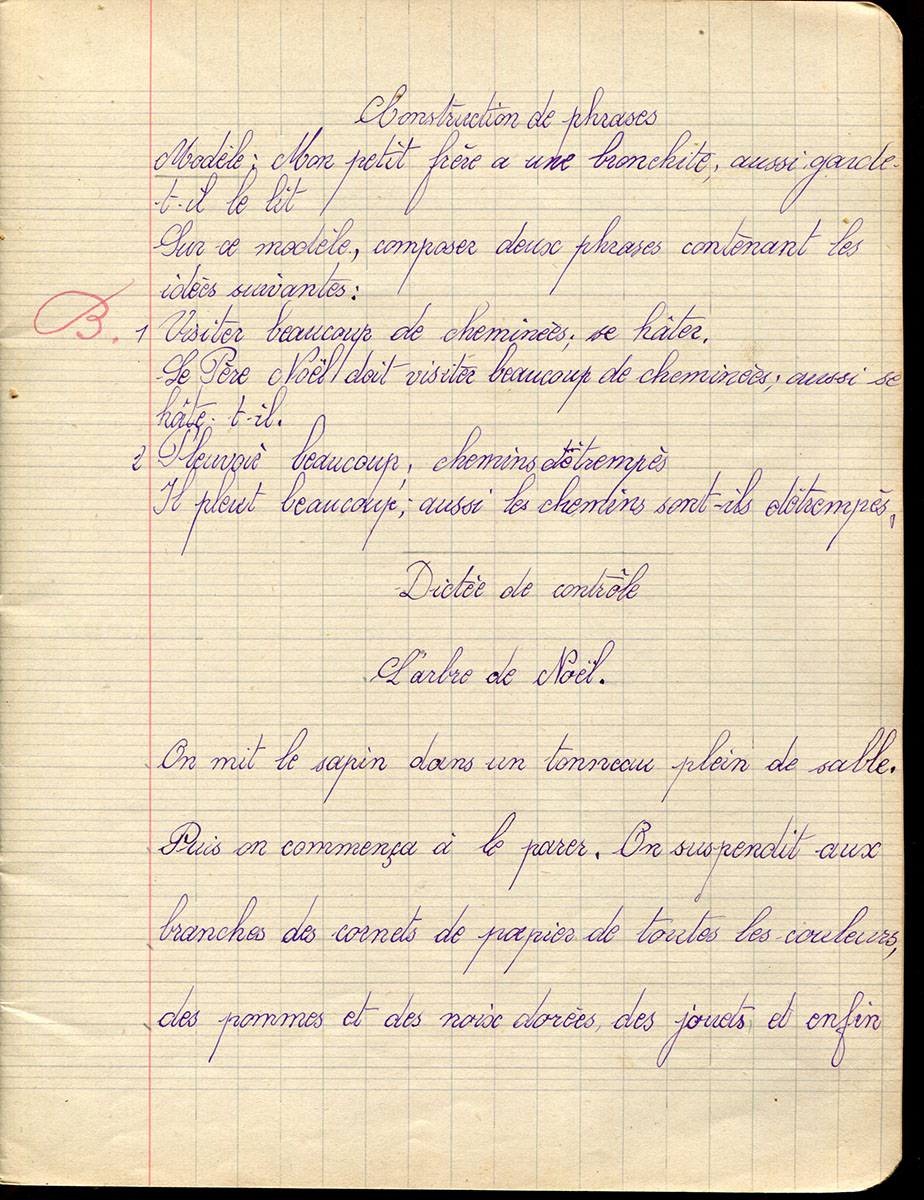 Construction de phrases
Modèle : Mon petit frère a une bronchite, aussi garde-
-t-il le lit
Sur ce modèle, composer deux phrases contenant les
idées suivantes :
B. 1 Visiter beaucoup de cheminées; se hâter.
Le Père Noël doit visiter beaucoup de cheminées; aussi se
hâte-t-il.
2 Pleuvoir beaucoup; chemins détrempés
Il pleut beaucoup; aussi les chemins sont-ils détrempés.
Dictée de contrôle
L'arbre de Noël.
On mit le sapin dans un tonneau plein de sable.
Puis on commença à le parer. On suspendit aux
branches des cornets de papier de toutes les couleurs,
des pommes et des noix dorées, des jouets et enfin